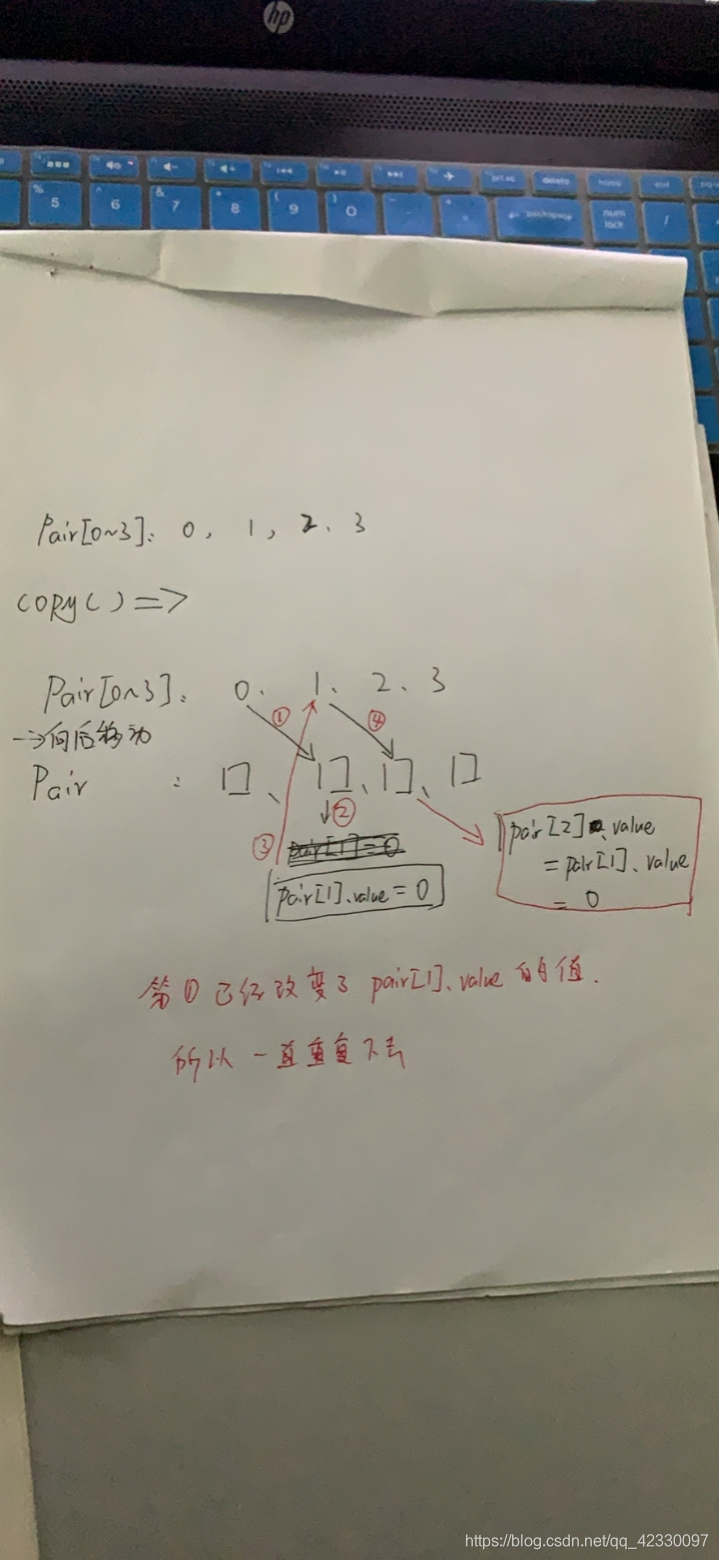 hp
5 6 7 8 9 0 backspace num lock /
Pair[0~3]: 0, 1, 2、3
copy()=>
Pair[0~3]: 0. 1、2、3
-->向后移动
① ④
Pair : 口、口、口、口
②
③
pair[1]=0
pair[1].value = 0
pair[2].value
=pair[1].value
= 0
第①已经改变了 pair[1].value 的值.
所以一直重复下去
https://blog.csdn.net/qq_42330097